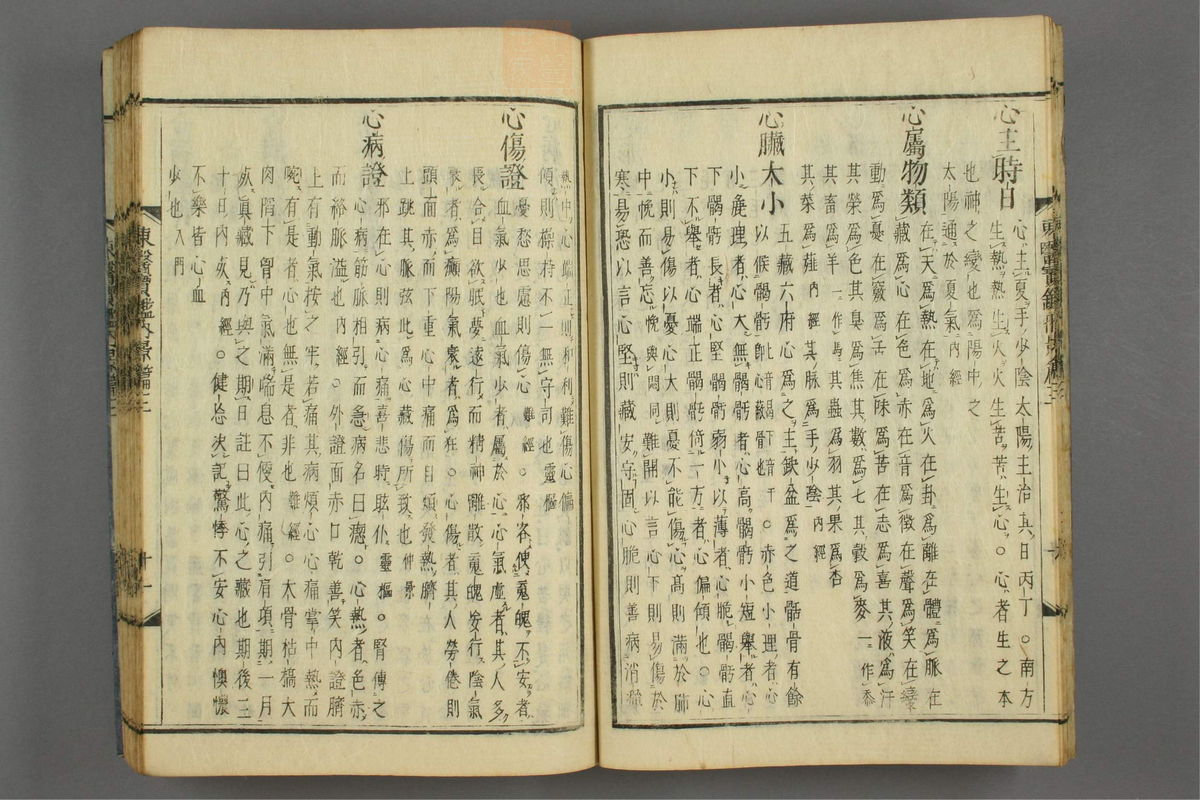 心主時日 心主夏手少陰太陽主治其日丙丁○南方
生熱熱生火火生苦苦生心○心者生之本
也神之變也爲陽中之
太陽通於夏氣 內經
心屬物類 在天爲熱在地爲火在卦爲離在體爲脈在
藏爲心在色爲赤在音爲徵在聲爲笑在變
動爲憂在竅爲舌在味爲苦在志爲喜其液爲汗
其榮爲色其臭爲焦其數爲七其穀爲麥 一作黍
其畜爲羊 一作馬 其蟲爲羽其果爲杏
其菜爲薤 內經 其脈爲手少陰 內經
心臟大小 五藏六府心爲之主缺盆爲之道骷骨有餘
以候𩩲骬 音曷音于 卽心蔽骨也 ○赤色小理者心
小麄理者心大無𩩲骬者心高𩩲骬小短擧者心
下𩩲骬長者心堅𩩲骬弱小以薄者心脆𩩲骬直
下不擧者心端正𩩲骬倚一方者心偏傾也○心
小則易傷以憂心大則憂不能傷心高則滿於肺
中悗而善忘 悗與悶同 難開以言心下則易傷於
寒易恐以言心堅則藏安守固心脆則善病消癉
熱中心端正則和利難傷心偏
傾則操持不一無守司也 靈樞
心傷證 憂愁思慮則傷心 難經 ○邪客使魂魄不安者
血氣少也血氣少者屬於心心氣虛者其人多
畏合目欲眠夢遠行而精神離散魂魄妄行陰氣
衰者爲癲陽氣衰者爲狂○心傷者其人勞倦則
頭面赤而下重心中痛而自煩發熱臍
上跳其脈弦此爲心藏傷所致也 仲景
心病證 邪在心則病心痛喜悲時眩仆 靈樞 ○腎傳之
心病筋脈相引而急病名曰瘛○心熱者色赤
而絡脈溢也 內經 ○外證面赤口乾善笑內證臍
上有動氣按之牢若痛其病煩心心痛掌中熱而
啘有是者心也無是者非也 難經 ○大骨枯槁大
肉陷下胷中氣滿喘息不便內痛引肩項期一月
死眞藏見乃與之期日註曰此心之藏也期後三
十日內死 內經 ○健忘失記驚悸不安心內懊憹
不樂皆心血
少也 入門
東醫寶鑑內景篇卷三
十一